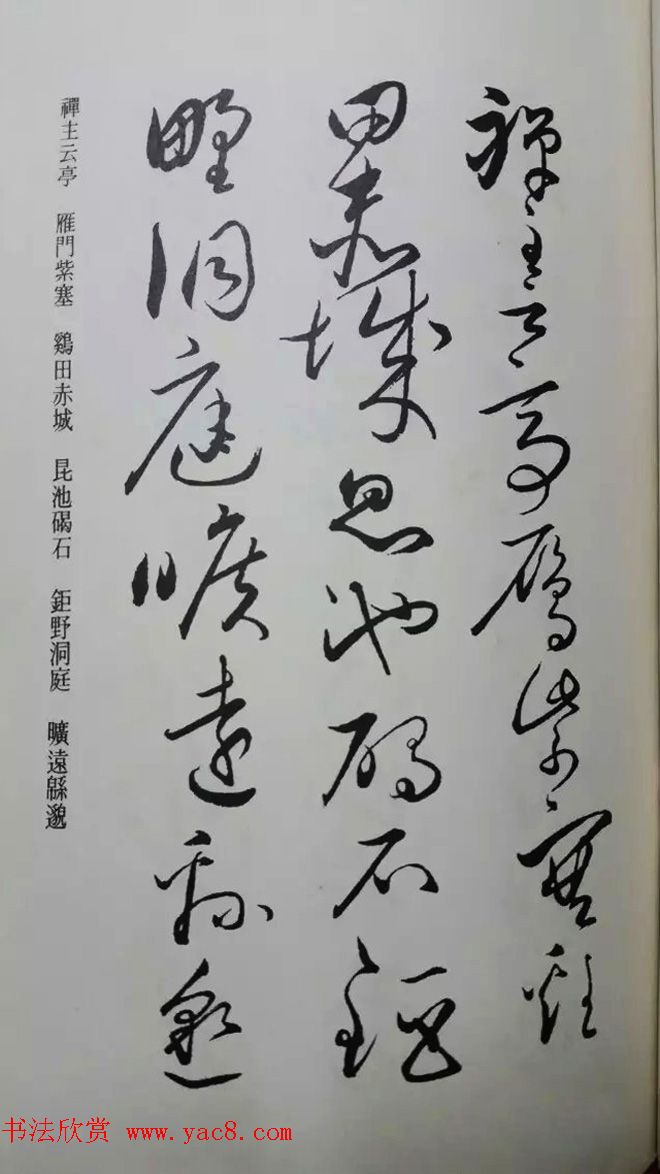 禪主云亭雁紫塞雞
田赤城昆池碣石鉅
野洞庭曠遠緜邈
禪主云亭 雁門紫塞 鷄田赤城 昆池碣石 鉅野洞庭 曠遠緜邈
书法欣赏 www.yac8.com